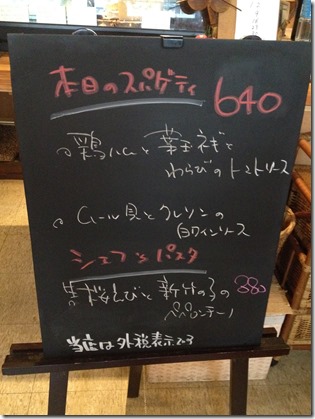 本日のスパゲティ 640
鶏ハムと葉玉ネギと
わらびのトマトソース
ムール貝とクレソンの
白ワインソース
シェフ'sパスタ
桜えびと新竹の子の 880
ペペロンチーノ
当店は外税表示です